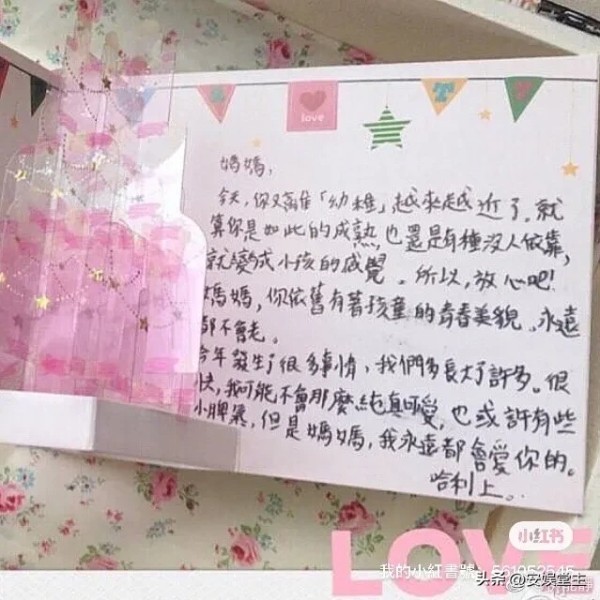 love
媽媽,
今天,你又離「幼稚」越來越近了。就
算你是如此的成熟,也還是有種沒人依靠,
就變成小孩的感覺。所以,放心吧!
媽媽,你依舊有著孩童的青春美貌。永遠
都不會老。
今年發生了很多事情,我們都長大了許多。很
快,我可能不會那麼純真可愛,也或許有些
小脾氣,但是媽媽,我永遠都會愛你的。
哈利上。
LOVE
小红书
我的小紅書號
头条@安娱堂主